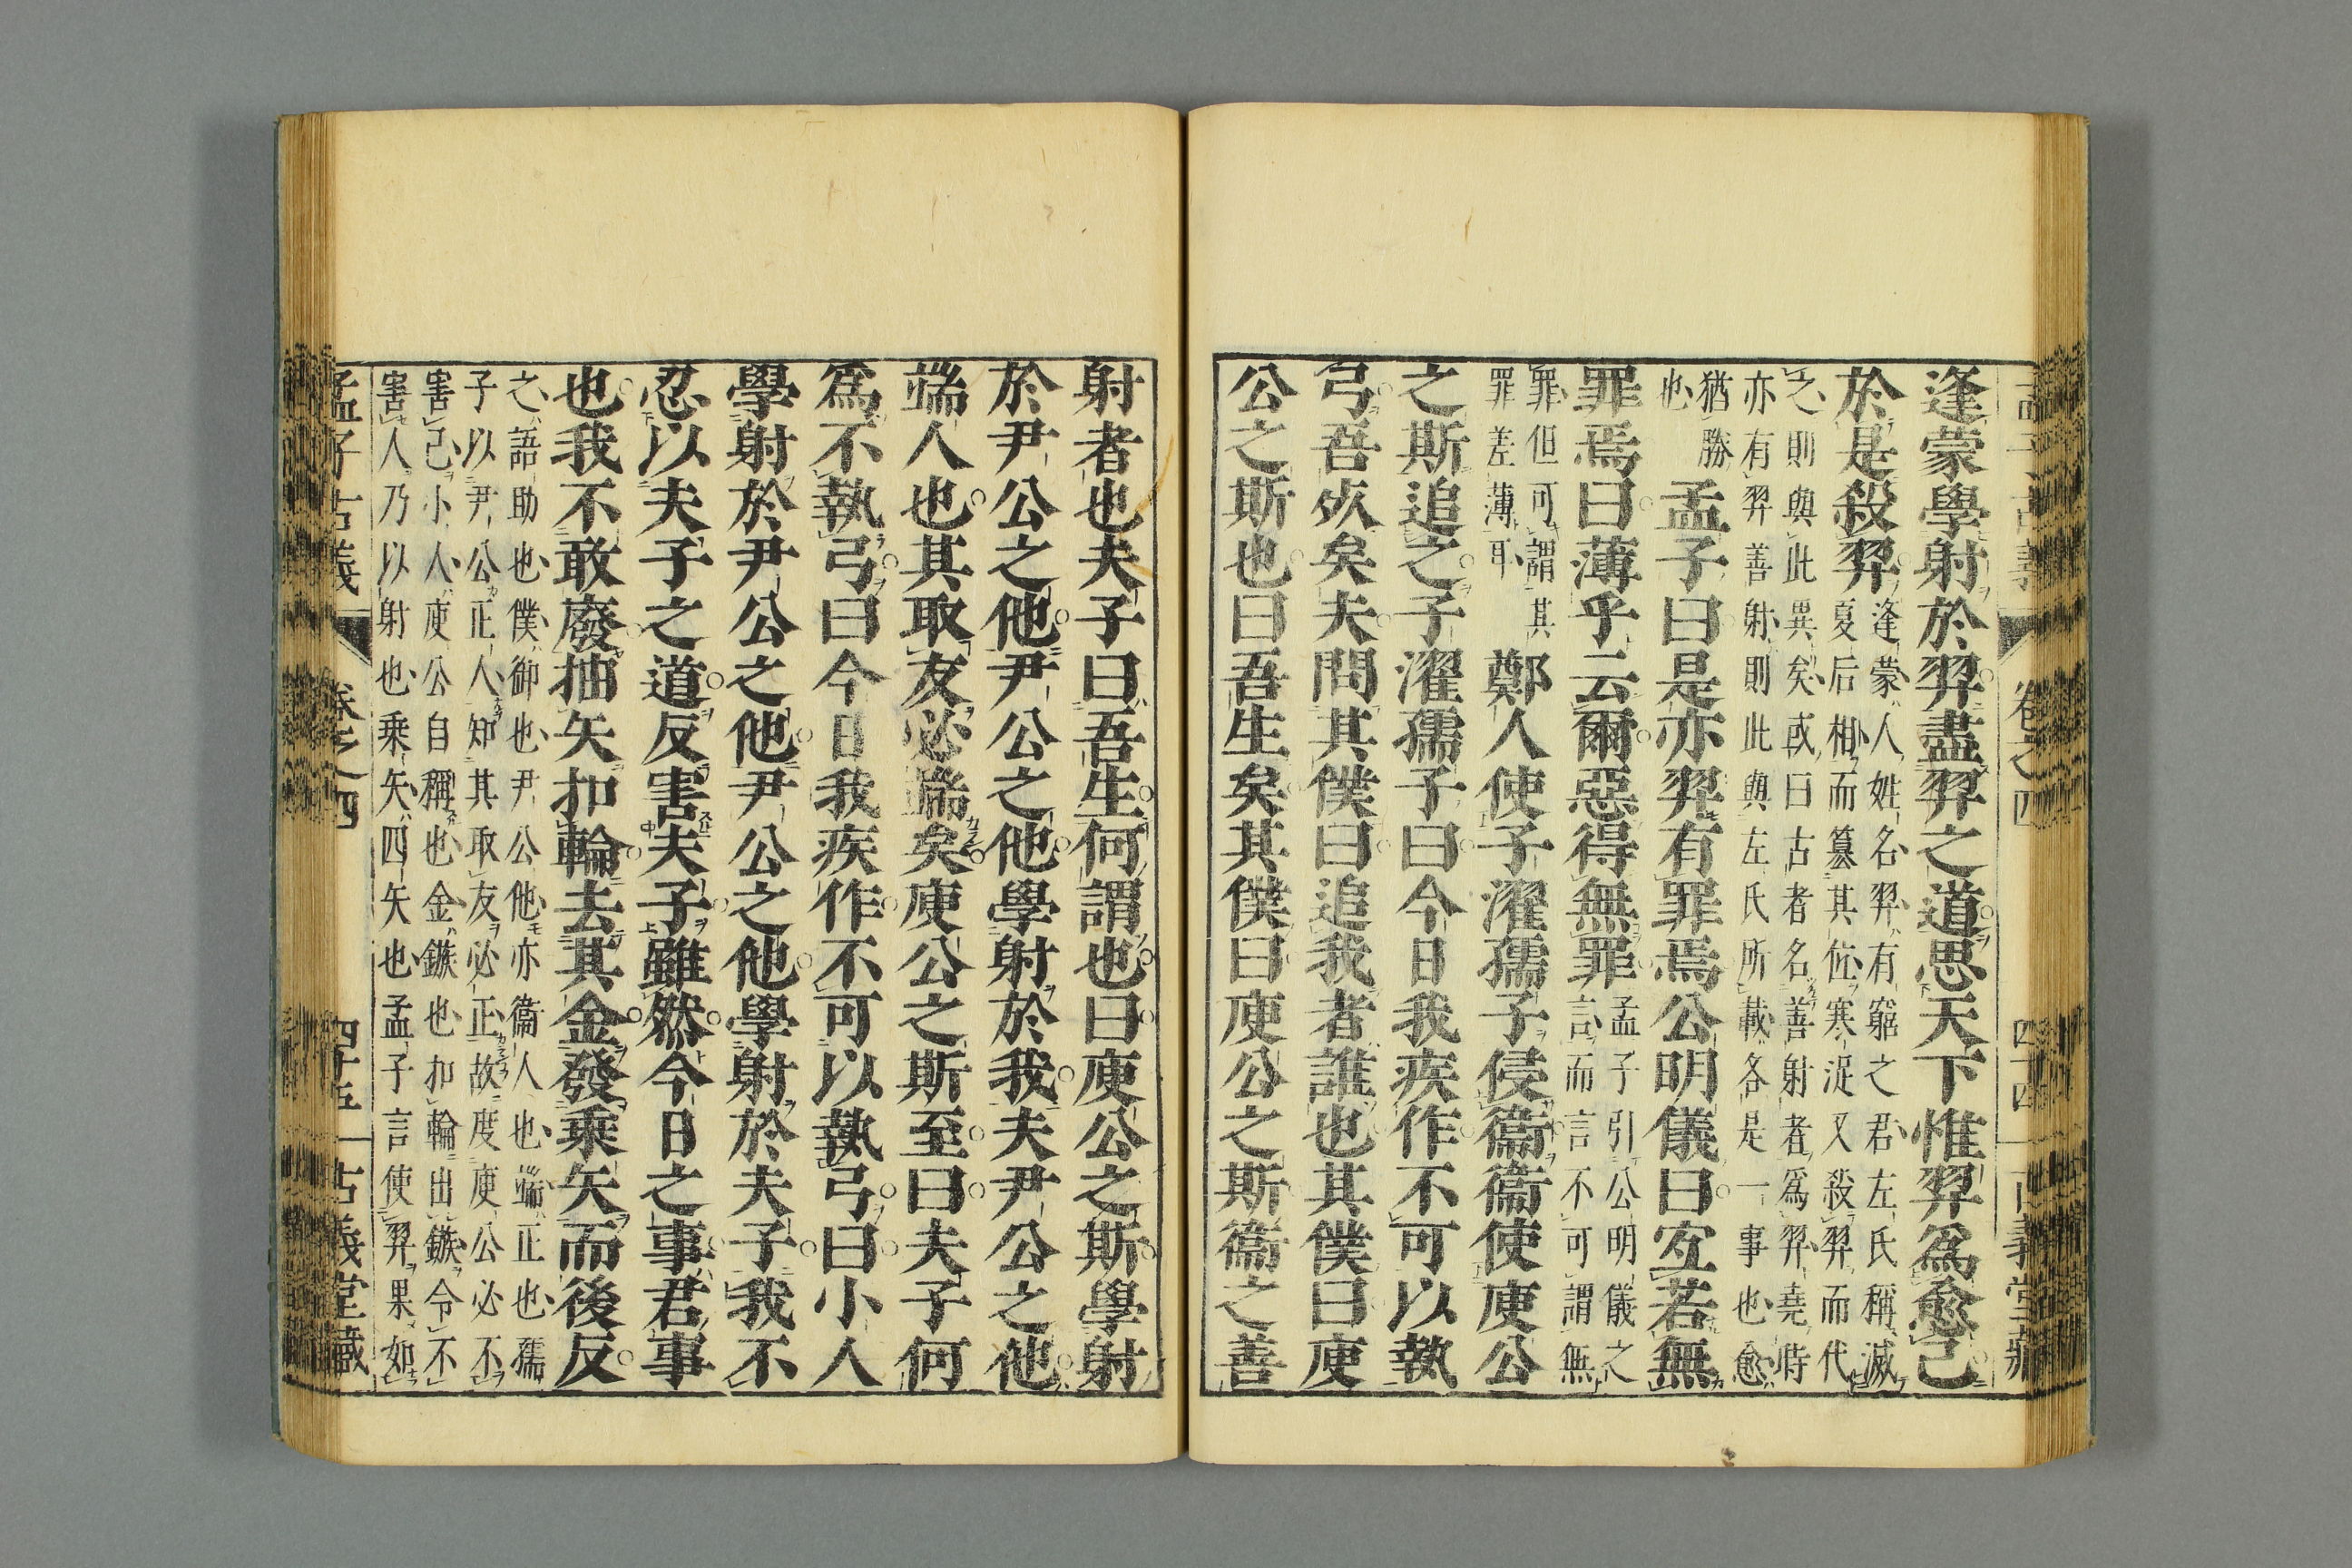 逢蒙學射於羿盡羿之道思天下惟羿爲愈己
於是殺羿
逢蒙人姓名羿有窮之君左氏稱滅
夏后相而篡其位寒浞又殺羿而代
之則與此異矣或曰古者名善射者爲羿堯時
亦有羿善射則此與左氏所載各是一事也愈
猶勝
也
孟子曰是亦羿有罪焉公明儀曰宜若無
罪焉曰薄乎云爾惡得無罪
孟子引公明儀之
言而言不可謂無
罪但可謂其
罪差薄耳
鄭人使子濯孺子侵衞衞使庾公
之斯追之子濯孺子曰今日我疾作不可以執
弓吾死矣夫問其僕曰追我者誰也其僕曰庾
公之斯也曰吾生矣其僕曰庾公之斯衞之善
射者也夫子曰吾生何謂也曰庾公之斯學射
於尹公之他尹公之他學射於我夫尹公之他
端人也其取友必端矣庾公之斯至曰夫子何
爲不執弓曰今日我疾作不可以執弓曰小人
學射於尹公之他尹公之他學射於夫子我不
忍以夫子之道反害夫子雖然今日之事君事
也我不敢廢抽矢扣輪去其金發乘矢而後反
之語助也僕御也尹公他亦衞人也端正也孺
子以尹公正人知其取友必正故度庾公必不
害己小人庾公自稱也金鏃也扣輪出鏃令不
害人乃以射也乘矢四矢也孟子言使羿果如
孟子古義
卷之四
四十五
古義堂藏